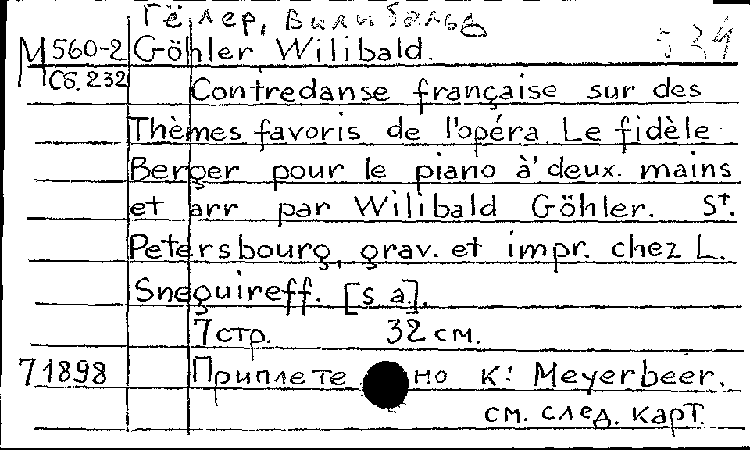 Гёлер, Вилибальд
М560-2 Göhler Wilibald.
Сб. 232 Contredanse française sur des
Thèmes favoris de l'opéra Le fidèle
Berger pour le piano à deux. mains
et arr par Wilibald Göhler. St.
Petersbourg, grav. et impr. chez L.
Sneguireff. [s a].
7 стр. 32 см.
71898 Приплетено к: Meyerbeer.
см. след. карт.